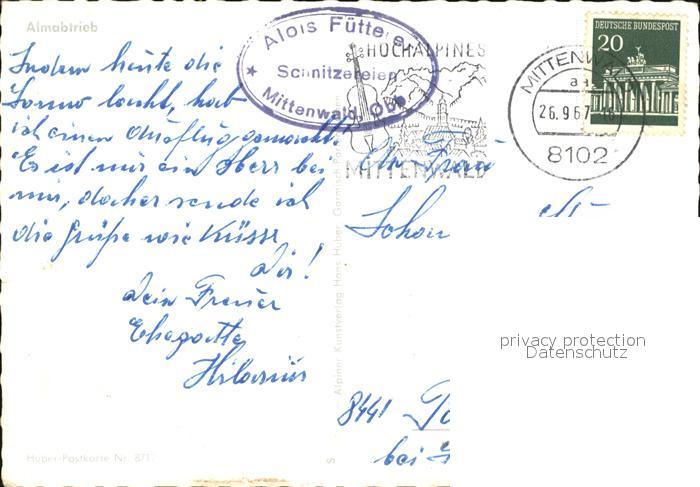 Almabtrieb
Indem heute die
Sonne lacht, hab
ich einen Ausflug gemacht.
Es ist nur ein Herr bei
mir, daher sende ich
die Grüße wie Küsse
Dir!
Dein Treuer
Ehegatte
Hilarius
Huber-Postkarte Nr. 871
Alpiner Kunstverlag Hans Huber Garmisch
Alois Fütterer
Schnitzereien
Mittenwald Obb
HOCHALPINES
MITTENWALD
DEUTSCHE BUNDESPOST
20
MITTENWA
26.9.67
8102
Frau
Schon
8441
bei
privacy protection
Datenschutz